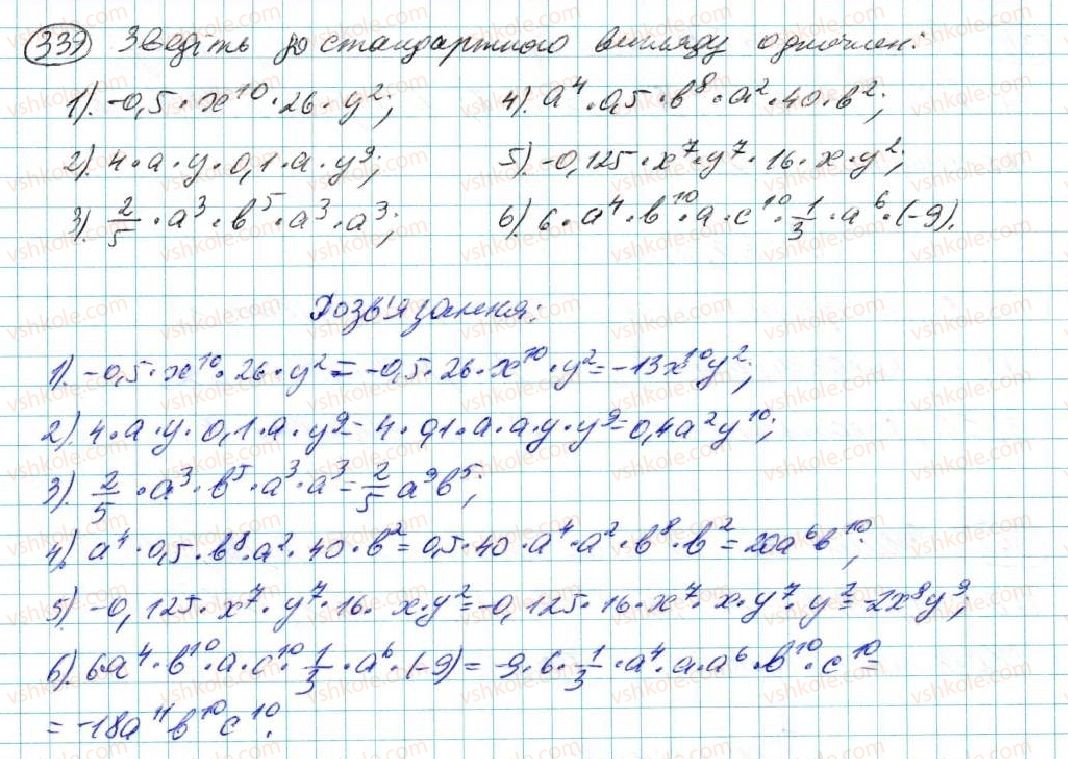 339 Зведіть до стандартного вигляду одночлен:
1). -0,5·x¹⁰·26·y²; 4). a⁴·0,5·b⁸·a²·40·b²;
2). 4·a·y·0,1·a·y⁹; 5). -0,125·x⁷·y⁷·16·x·y²;
3). 2/5·a³·b⁵·a³·a³; 6). 6·a⁴·b¹⁰·a·c¹⁰·1/3·a⁶·(-9).
Розв'язання:
1). -0,5·x¹⁰·26·y² = -0,5·26·x¹⁰·y² = -13x¹⁰y²;
2). 4·a·y·0,1·a·y⁹ = 4·0,1·a·a·y·y⁹ = 0,4a²y¹⁰;
3). 2/5·a³·b⁵·a³·a³ = 2/5 a⁹b⁵;
4). a⁴·0,5·b⁸·a²·40·b² = 0,5·40·a⁴·a²·b⁸·b² = 20a⁶b¹⁰;
5) -0,125·x⁷·y⁷·16·x·y² = -0,125·16·x⁷·x·y⁷·y² = -2x⁸y⁹;
6). 6a⁴·b¹⁰·a·c¹⁰·1/3·a⁶·(-9) = -9·6·1/3·a⁴·a·a⁶·b¹⁰·c¹⁰ =
= -18a¹¹b¹⁰c¹⁰.
vshkole.com